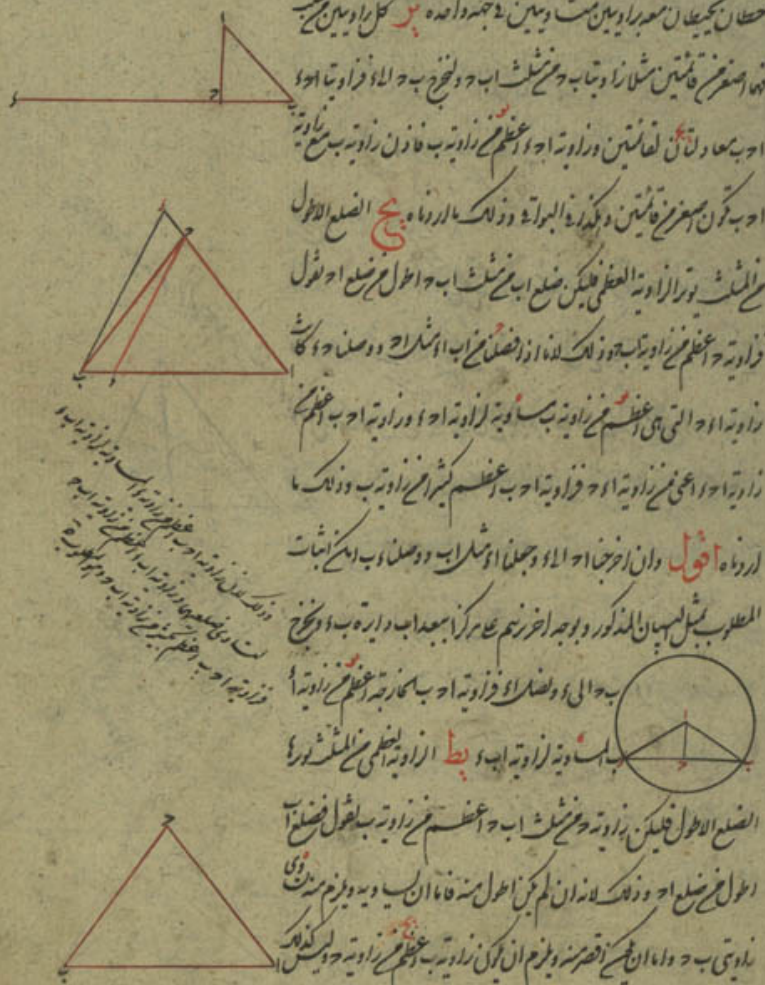 خطان يحيطان معه بزاويتين متساويتين في جهة واحدة يز كل زاويتين من مثلث
فهما اصغر من قائمتين مثلا زاويتا ب ح من مثلث اب ح ولنخرج ب ح الى ء فزاويتا ا ح ء
ا ح ب معادلتان لقائمتين وزاوية ا ح ء اعظم من زاوية ب فاذن زاوية ب مع زاوية
ا ح ب تكون اصغر من قائمتين وهكذا في البواقي وذلك ما اردناه يح الضلع الاطول
من المثلث يوتر الزاوية العظمى فليكن ضلع اب من مثلث اب ح اطول من ضلع ا ح نقول
فزاوية ح اعظم من زاوية ب وذلك لانا اذا فصلنا من اب اء مثل ا ح ووصلنا ح ء كانت
زاوية اء ح التي هي اعظم من زاوية ب مساوية لزاوية ا ح ء وزاوية ا ح ب اعظم من
زاوية ا ح ء اعني من زاوية اء ح فزاوية ا ح ب اعظم كثيرا من زاوية ب وذلك ما
اردناه اقول وان اخرجنا ا ح الى ء وجعلنا اء مثل اب ووصلنا ء ب امكن اثبات
المطلوب بمثل البيان المذكور وبوجه اخر نرسم على مركز ا ببعد اب دايرة ب ء ونخرج
ب ح الى ء ونصل اء فزاوية ا ح ب الخارجة اعظم من زاوية ء
المساوية لزاوية اب ء يط الزاوية العظمى من المثلث يوترها
الضلع الاطول فليكن زاوية ح من مثلث اب ح اعظم من زاوية ب نقول فضلع اب
اطول من ضلع ا ح وذلك لانه ان لم يكن اطول منه فاما ان يساويه ويلزم منه تساوي
زاويتي ب ح واما ان يكون اقصر منه ويلزم ان يكون زاوية ب اعظم من زاوية ح وليس كذلك
وذلك لان زاوية ا ح ب اعظم من زاوية ء المساوية لزاوية اب ء
لتساوي ضلعيهما وزاوية اب ء اعظم من زاوية اب ح
فزاوية ا ح ب اعظم كثيرا من زاوية اب ح وهو المطلوب